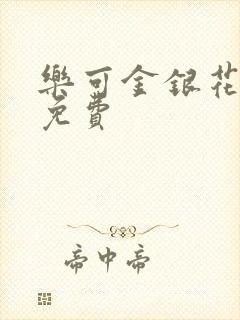 樂可金銀花
免費
帝中帝